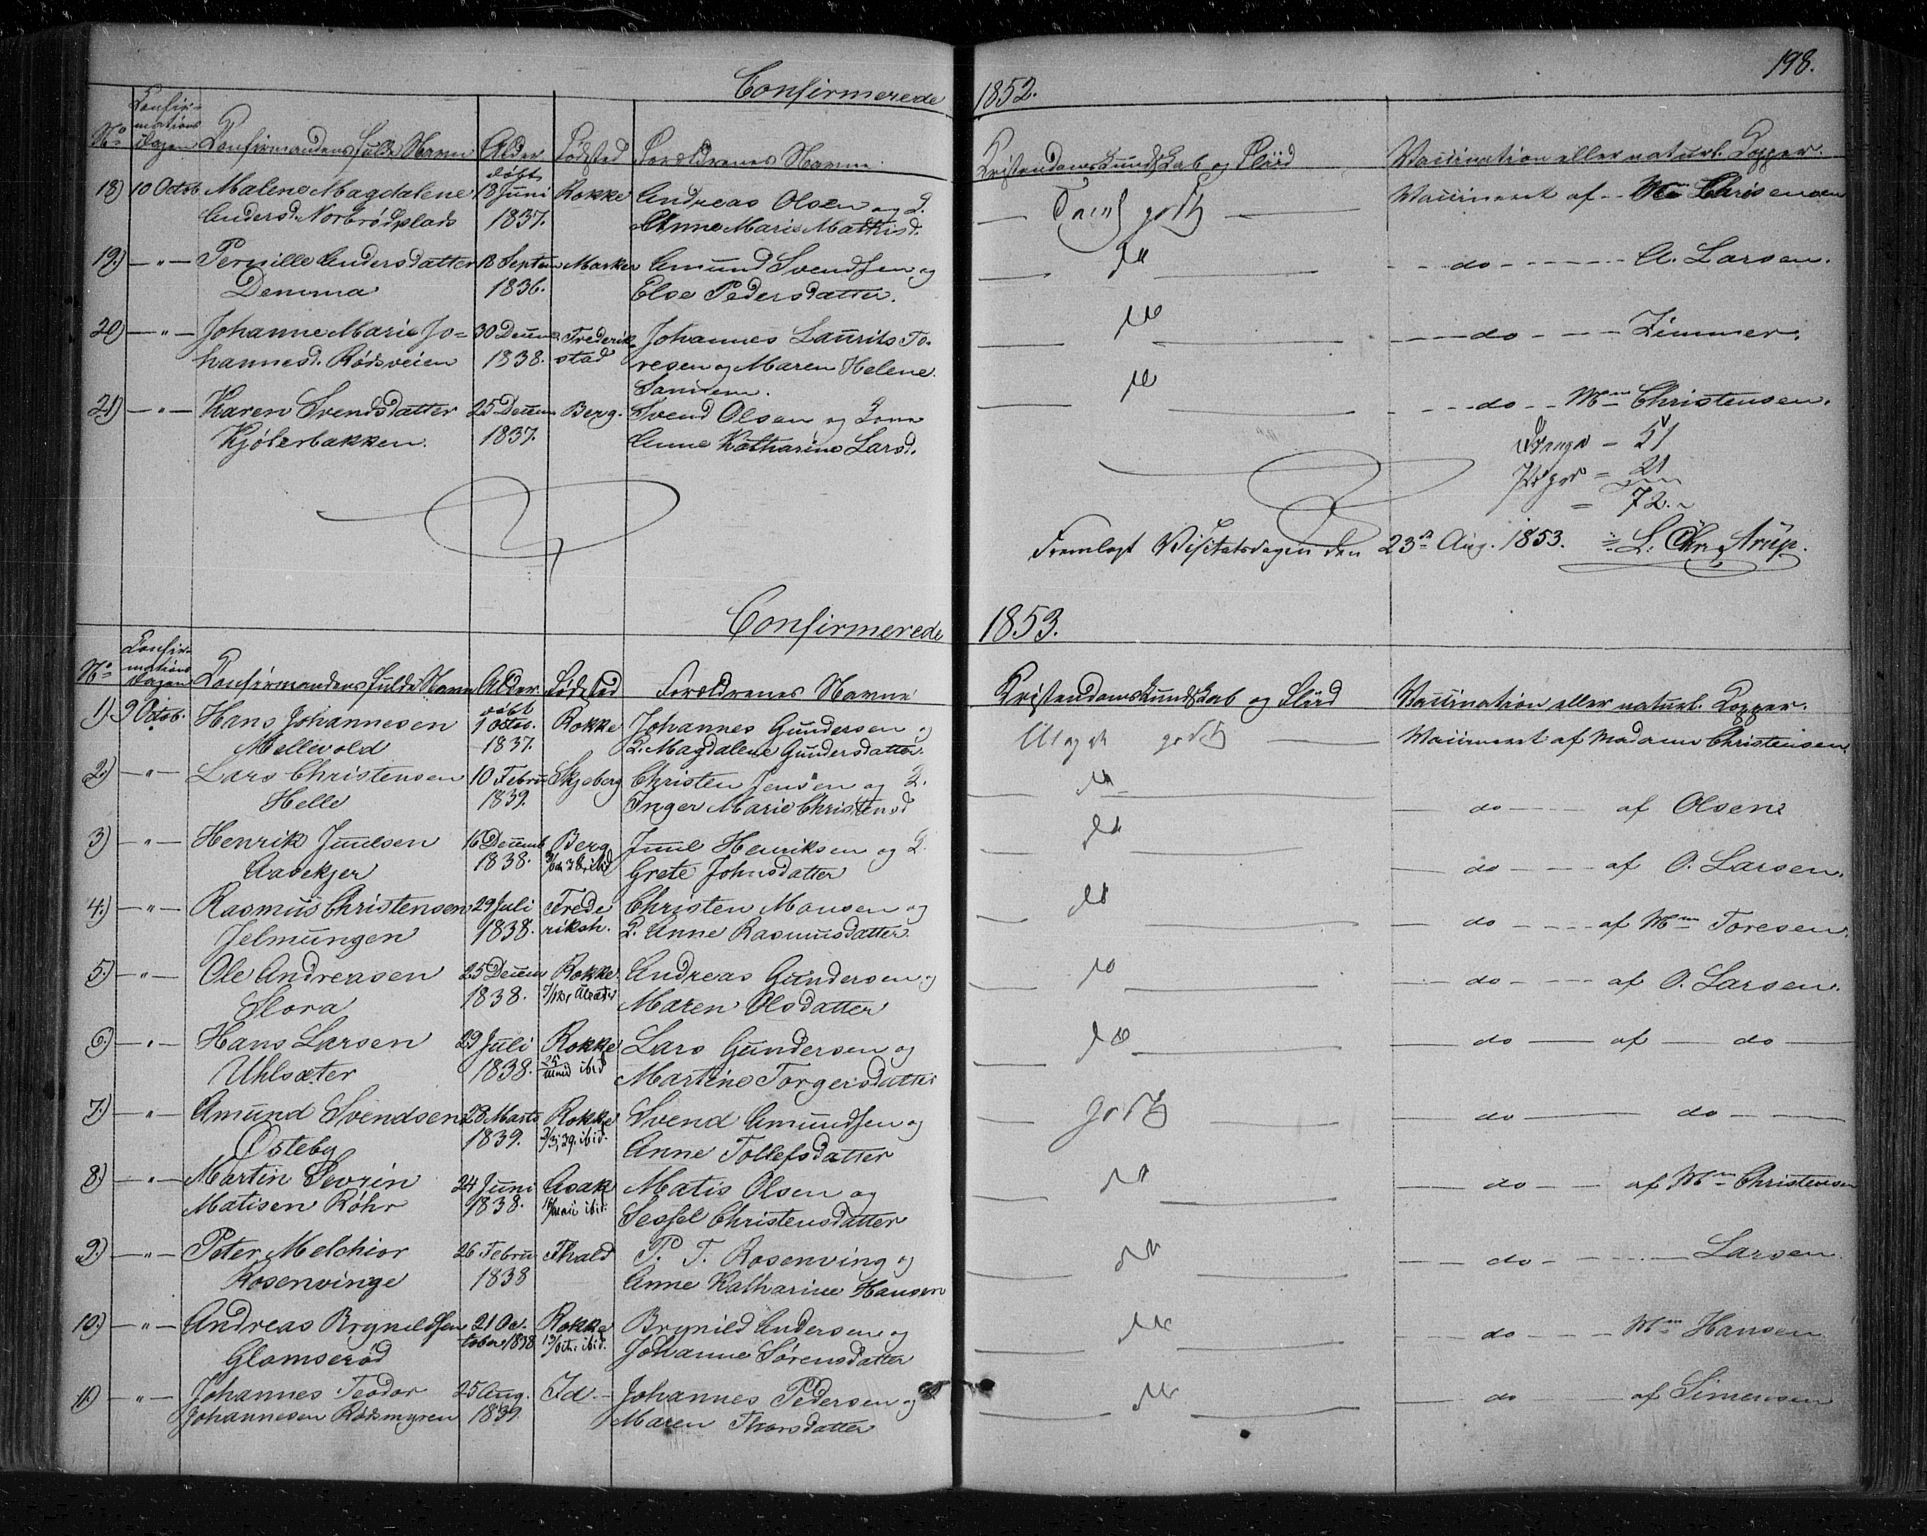 Confirmerede 1852. 198.
No Confirmations Dagen Confirmandens fulde Navn Alder Fødested Forældrenes Navne Kristendoms Kundskab og Flid Vaccination eller naturl. Kopper.
18) 10 Octob Malene Magdalene døbt 18 Juni Rokke Andreas Olsen og Q. godt Vaccineret af
Andersd. Norbrødplads 1837. Anne Marie Mathisd.
19) — " — Pernille Andersdatter 18 Septem Marker Amund Svendsen og do — do — A. Larsen.
Demma 1836. Else Pedersdatter.
20) — " — Johanne Marie Jo- 30 Decem Frederik Johannes Laurits To- do — do — Zimmer.
hannesd. Rødsveien 1838. stad resen og Maren Helene
21) — " — Karen Svendsdatter 25 Decem Berg. Svend Olsen og Kone do — do — Mm Christensen.
Kjølerbakken. 1837. Anne Katharine Larsd.
Drenge — 51
Piger = 21
= 72.
Fremlagt Visitatsdagen den 23de Aug. 1853. L. Chr. Arup.
Confirmerede 1853.
No Confirmations Dagen Confirmandens fulde Navn Alder Fødested Forældrenes Navne Kristendoms Kundskab og Flid Vaccination eller naturl. Kopper.
1) 9 Octob. Hans Johannesen døbt 1 Octob. Rokke Johannes Gundersen og Meget godt Vaccineret af Madame Christensen
Mellevold 1837. Q. Magdalene Gundersdatter.
2.) — " — Lars Christensen 10 Febru Skjeberg Christen Jensen og Q. do — do — af Olsen
Helle 1839. Inger Marie Christensd
3) — " — Henrik Juulsen 16 Decemb Berg Juul Henriksen og Q. do — do — af O. Larsen.
Aabekjer 1838. Grete Johnsdatter
4.) — " — Rasmus Christensen 29 Juli Frede Christen Monsen og do — do — af Mm Toresen.
Jelmungen 1838. riksh. Q. Anne Rasmusdatter
5.) — " — Ole Andreasen 25 Decem Rokke Andreas Gundersen og do — do — af O. Larsen.
Flora 1838. Maren Olsdatter
6) — " — Hans Larsen 29 Juli Rokke Lars Gundersen og do — do — af — do —
Uhlsæter 1838. ibid Martine Torgersdatter
7.) — " — Amund Svendsen 28 Marts Rokke Svend Amundsen og godt — do — do —
Østeby 1839. ibid. Anne Tollefsdatter
8.) — " — Martin Severin 24 Juni Asak Matis Olsen og do — do — af Mm Christensen
Matisen Røhr 1838. ibid. Sessel Christensdatter
9) — " — Peter Melchior 26 Febru Thald P. T. Rosenving og do — do — Larsen.
Rosenvinge 1838 Anne Katharine Hansen
10.) — " — Andreas Brynildsen 21 Oc- Rokke Brynild Andersen og do — do — Mm Hansen
Glomserød tober 1838 ibid. Johanne Sørensdatter
11) — " — Johannes Teodor 25 Aug. Id. Johannes Pedersen og do — do — af Simensen
Johannesen Rødsmyren 1839. Maren Thorsdatter